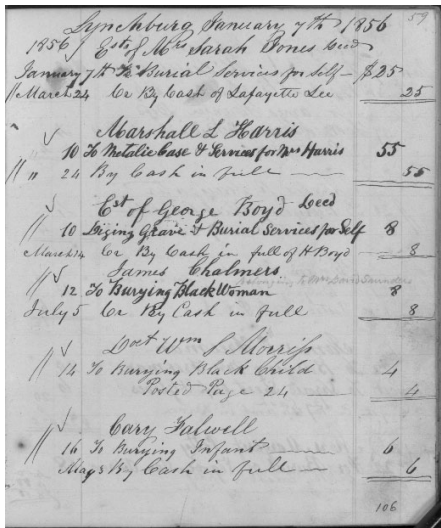 59
Lynchburg January 7th 1856
1856 Est of Mrs Sarah Jones Decd
January 7th To Burial Services for Self — $25
March 24 Cr By Cash of Lafayette Lee 25
Marshall L Harris
10 To Metalic Case & Services for Mrs Harris 55
" 24 By Cash in full — 55
Est of George Boyd Decd
10 Diging Grave & Burial Services for Self 8
March 14 Cr By Cash in full of H Boyd — 8
James Chalmers
12 To Burying Black Woman 8
July 5 Cr By Cash in full 8
Doct Wm S Morriss
14 To Burying Black Child 4
Posted Page 24 — 4
Cary Falwell
16 To Burying Infant — 6
May 3 By Cash in full — 6
106